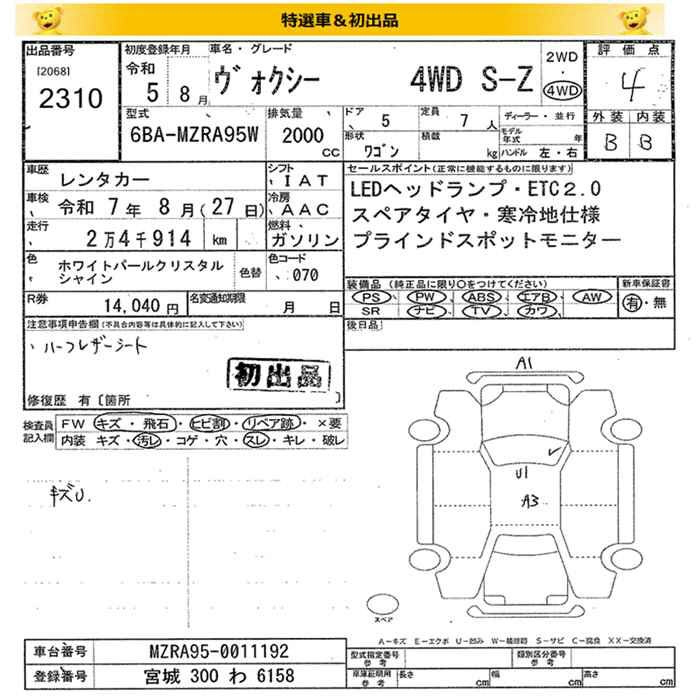 特選車＆初出品
出品番号
[2068]
2310
初度登録年月
令和
5 8月
車名・グレード
ヴォクシー 4WD S-Z
2WD
・
4WD
評価点
4
外装 内装
B B
型式
6BA-MZRA95W
排気量
2000
CC
ドア
5
定員
7人
ディーラー・並行
形状
ワゴン
積載
kg
モデル年式 年
ハンドル 左・右
車歴
レンタカー
シフト
IAT
車検
令和 7年 8月(27日)
冷房
AAC
走行
2万4千914 km
燃料
ガソリン
色
ホワイトパールクリスタル
シャイン
色替
色コード
070
R券
14,040円
名変通知期限
月 日
セールスポイント(正常に機能するものに限ります)
LEDヘッドランプ・ETC2.0
スペアタイヤ・寒冷地仕様
ブラインドスポットモニター
装備品(純正品に限り○をつけてください)
PS PW ABS エアB AW
SR ナビ TV カワ
新車保証書
有・無
後日品
注意事項申告欄(不具合内容等は具体的に記入して下さい)
、ハーフレザーシート
初出品
修復歴 有〔箇所 〕
検査員
記入欄
FW キズ・飛石 ・ ヒビ割 ・ リペア跡 ・ ×要
内装 キズ・汚レ・コゲ・穴・スレ・キレ・破レ
キズU.
A1
U1
A3
スペア
A-キズ E-エクボ U-凹み W-補修跡 S-サビ C-腐食 XX-交換済
車台番号
MZRA95-0011192
登録番号
宮城 300 わ 6158
型式指定番号
参考
類別区分番号
参考
車庫証明用
参考
長さ cm
幅 cm
高さ cm